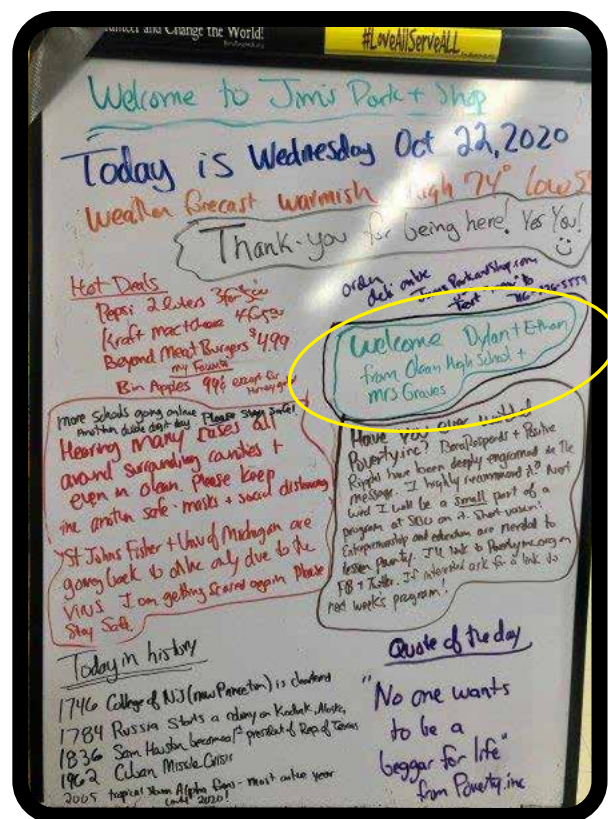 and Change the World!
#LoveAllServeALL
Welcome to Jim's Park + Shop
Today is Wednesday Oct 22, 2020
Weather forecast warmish high 74° low 5
Thank-you for being here! Yes You!
Hot Deals
Pepsi 2 liters 3 for
Kraft mac + cheese
Beyond Meat Burgers $4.99
my Favorite
Bin Apples 99¢ except for
order
deli online JimsParkandShop.com
Text
Welcome Dylan + Ethan
from Olean High School +
Mrs Graves
more schools going online Please Stay Safe!
Another double digit day
Hearing Many cases all
around surrounding counties +
even in Olean. Please keep
one another safe - masks + social distancing
St Johns Fisher + Univ of Michigan are
going back to online only due to the
virus I am getting scared again Please
Stay Safe
Have you ever watched
Poverty inc? BonaResponds + Positive
Ripples have been deeply engrained in the
message. I highly recommend it! Next
wed I will be a small part of a
program at SBU on it. Short version!
Entrepreneurship and education are needed to
lessen poverty. I'll link to Povertyinc.org on
FB + Twitter. If interested ask for a link to
next week's program!
Today in history
1746 College of NJ (now Princeton) is chartered
1784 Russia starts a colony on Kodiak, Alaska,
1836 Sam Houston becomes 1st president of Rep of Texas
1962 Cuban Missile Crisis
2005 tropical storm Alpha forms - most active year
until 2020!
Quote of the day
"No one wants
to be a
beggar for life"
from Poverty.inc